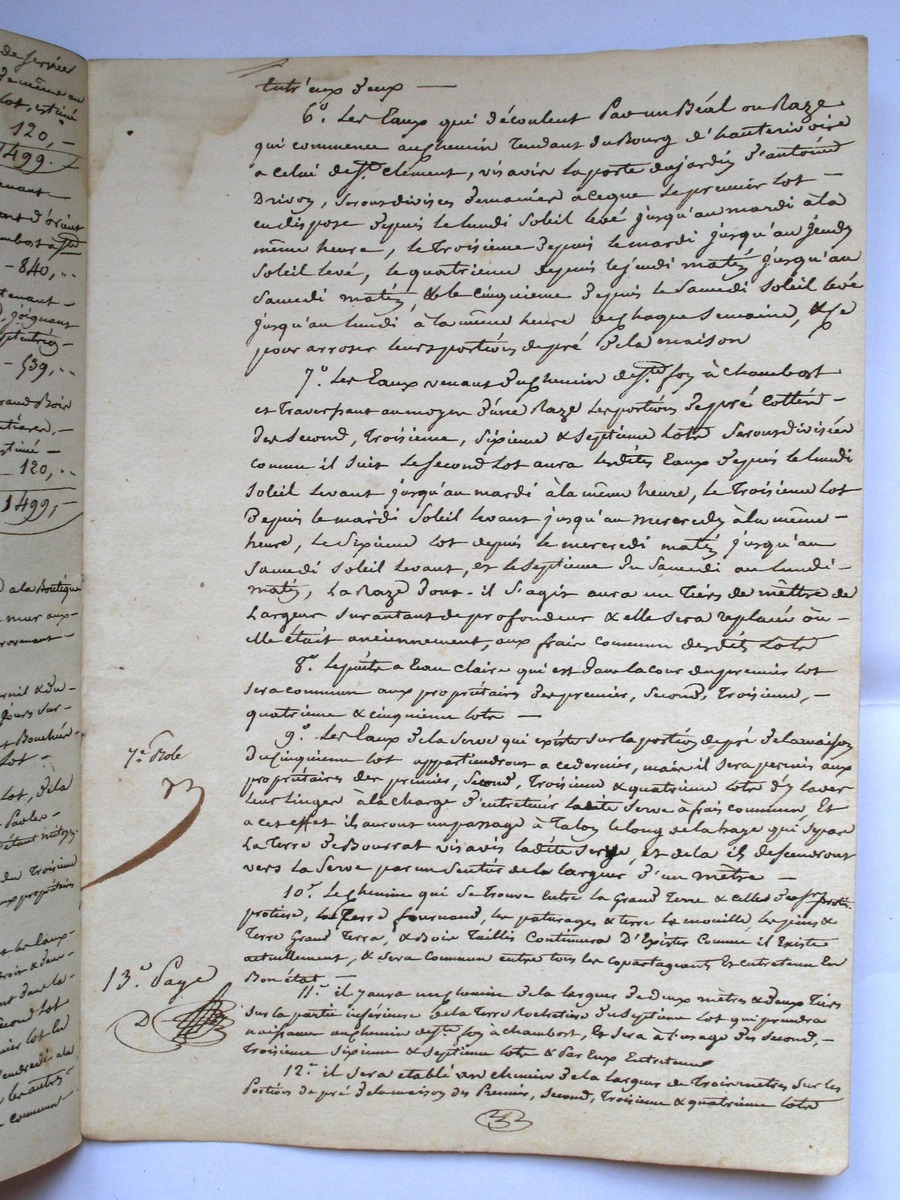 de Servées
de même au
lot, estimé
120,-
1499.-
tenant
ant d'orient
mbost a St
-840,..
tenant -
, joignant
-539,..
rand Bois
estimé -
120,..
1499,-
a la Boutique
mur aux-
lot -
lot, de la
du Troisième
aux propriétaires
et les eaux-
second lot
vendredi a la
les autres-
commun-
Entr'eux d'eux —
6°. Les Eaux qui découlent Par un Béal ou Raze
qui commence au chemin Tendant du Bourg d'hauterivoire
a celui de St. Clément, vis avis la porte du jardin d'antoine
Drivon, seront divisés de manière à ce que le premier lot —
en dispose depuis le lundi Soleil levé jusqu'au mardi à la
même heure, le Troisième depuis le mardi jusqu'au jeudy
Soleil levé, le quatrième depuis le jeudi matin jusqu'au
Samedi matin, & le cinquième depuis le Samedi Soleil levé
jusqu'au lundi à la même heure de chaque Semaine, & ce
pour arroser leurs portions de pré de la maison
7°. Les Eaux venant du chemin de Ste. foy à Chambost
et Traversant au moyen d'une Raze les portions de pré Cottère -
des Second, Troisième, Sixième & Septième lots seront divisées
comme il suit le Second lot aura lesdites Eaux depuis le lundi
Soleil levant jusqu'au mardi à la même heure, le Troisième lot
Depuis le mardi Soleil levant jusqu'au mercredy à la même -
heure, le Sixième lot depuis le mercredi matin jusqu'au
Samedi Soleil levant, et le Septième du Samedi au lundi -
matin, La Raze dont - il S'agit aura un Tiers de mêttre de
Largeur sur autant de profondeur & elle sera replacée où -
elle était anciennement, aux frais commun desdits lots
8°. Le puits a Eau Claire qui est dans la cour du premier lot
sera commun aux propriétaires des premier, Second, Troisième, -
quatrième & cinquième lots —
9°. Les Eaux de la Serve qui existe sur la portion de pré de la maison
du cinquième lot appartiendront a ce dernier, mais il sera permis aux
propriétaires des premier, Second, Troisième & quatrième lots d'y laver
leurs linges à la charge d'entretenir ladite Serve à frais commun Et
a cet effet ils auront un passage à Talon le long de la haze qui sépare
La Terre de Bourrat vis avis ladite Serve, et de la ils descendront
vers la Serve par un Sentier de la largeur d'un mètre —
10°. Le chemine qui se trouve Entre la Grand Terre & celles des
protière, la Terre fournaud, les paturages & terre la mouille, les pins &
Terre Grand Terra, & Bois Taillis Continuera D'Exister Comme il Existe
actuellement, & sera Commun entre tous les copartageants Et entretenu En
Bon état —
11°. il y aura un chemin de la largeur de deux mètres & deux Tiers
sur la partie inférieure de la Terre Rochetière du Septième lot qui prendra
naissance au chemin de Ste. foy a chambost, & Sera à l'usage des Second, -
Troisième Sixième & Septième lots & Par Eux Entretenus
12°. il sera établi un chemin de la largeur de Trois mètres sur les
Portions de pré de la maison des Premier, Second, Troisième & quatrième lots
7e. Role
13°. Page